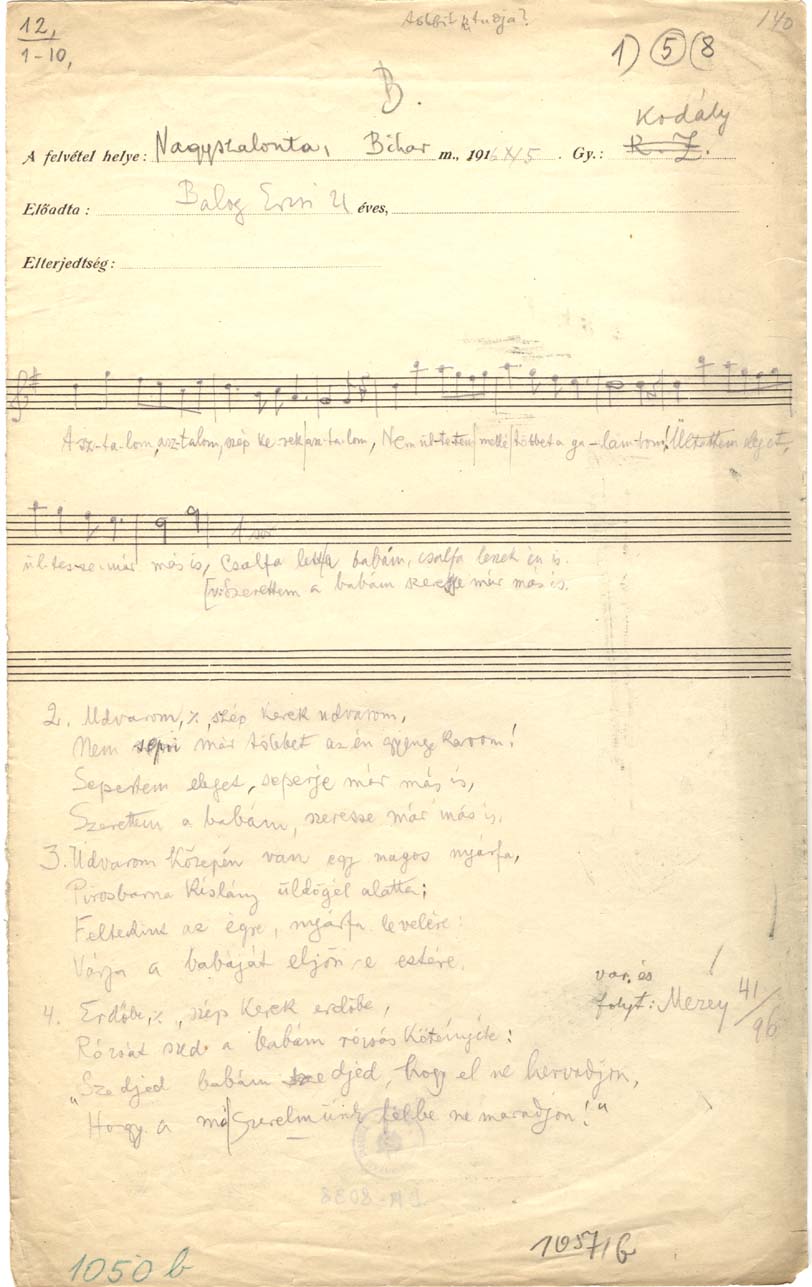 12,
1-10,
többit ki tudja?
140
1) 5 (8
B.
Kodály
A felvétel helye: Nagyszalonta, Bihar m., 1916 X/5. Gy.: K. Z.
Előadta: Balog Erzsi 21 éves,
Elterjedtség:
Asz-ta-lom, asz-talom, szép ke-rek asz-ta-lom, Nem ül-tettem mellé többet a ga-lam-bom! Ültettem eleget,
ül-tes-se már más is, Csalfa lett a babám, csalfa leszek én is.
[v: Szerettem a babám szeresse már más is.
2. Udvarom, %, szép kerek udvarom,
Nem sepri már többet az én gyenge karom!
Sepertem eleget, seperje már más is,
Szerettem a babám, szeresse már más is.
3. Udvarom közepén van egy magos nyárfa,
Pirosbarna kislány üldögél alatta;
Feltekint az égre, nyárfa levelére:
Várja a babáját eljön-e estére.
var. és
folyt: Mezey 41/96
4. Erdőbe, %, szép kerek erdőbe,
Rózsát szed a babám rózsás kötényébe:
"Szedjed babám szedjed, hogy el ne hervadjon,
Hogy a mi szerelmünk félbe ne maradjon!"
1050 b
1057/b